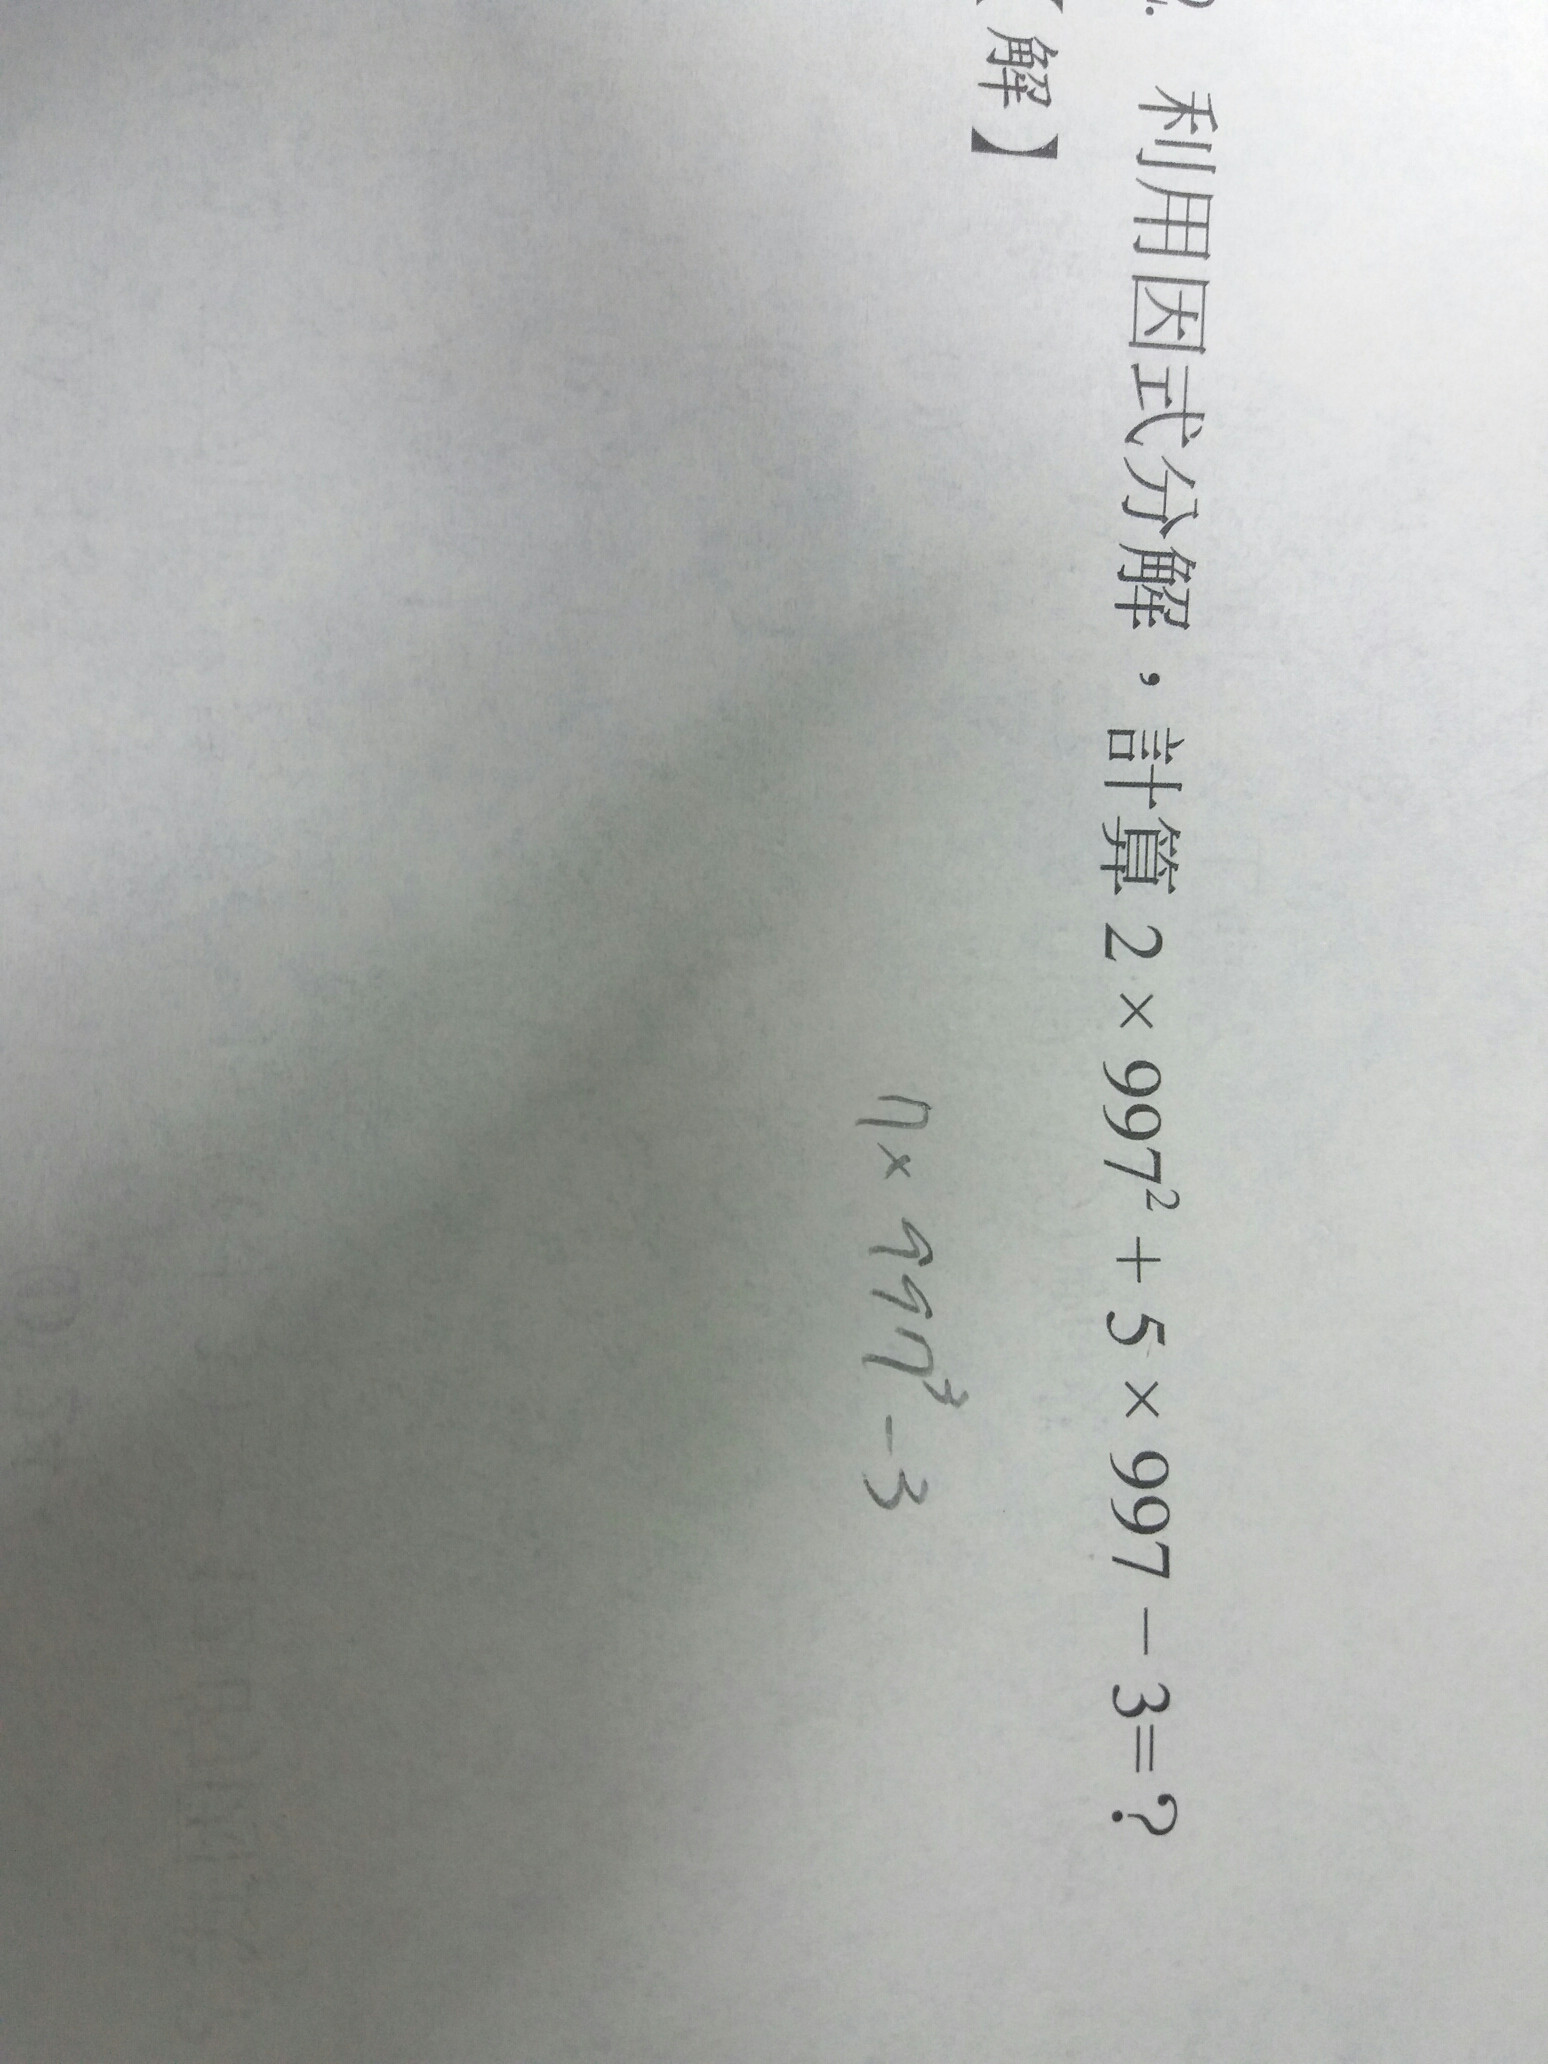 2. 利用因式分解，計算 2 × 997² + 5 × 997 − 3=？
【解】
7× 997³ −3